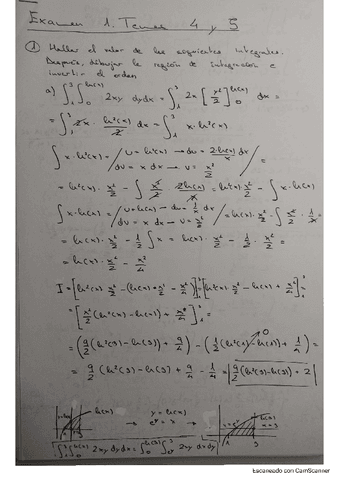 Examen 1. Temas 4 y 5
① Hallar el valor de las siguientes integrales.
Después, dibujar la región de integración e
invertir el orden
a) ∫₁³ ∫₀^{ln(x)} 2xy dy dx = ∫₁³ 2x [y²/2]₀^{ln(x)} dx =
= ∫₁³ 2x · ln²(x)/2 dx = ∫₁³ x · ln²(x)
∫ x · ln²(x) = / u = ln²(x) → du = 2·ln(x)/x / dv = x dx → v = x²/2 / =
= ln²(x) · x²/2 - ∫ x²/2 · 2ln(x)/x = ln²(x) x²/2 - ∫ x · ln(x)
∫ x · ln(x) = / u = ln(x) → du = 1/x dx / dv = x dx → v = x²/2 / = ln(x) · x²/2 - ∫ x²/2 · 1/x =
= ln(x) · x²/2 - 1/2 ∫ x = ln(x) · x²/2 - 1/2 · x²/2 =
= ln(x) · x²/2 - x²/4
I = [ln²(x) · x²/2 - (ln(x) · x²/2 - x²/4)]₁³ = [ln²(x) · x²/2 - ln(x) · x²/2 + x²/4]₁³ =
= [x²/2 (ln²(x) - ln(x)) + x²/4]₁³ =
= (9/2 (ln²(3) - ln(3)) + 9/4) - (1/2 (ln²(1) - ln(1)) + 1/4) =
0
= 9/2 (ln²(3) - ln(3)) + 9/4 - 1/4 = 9/2 (ln²(3) - ln(3)) + 2
ln(x) y = ln(x) ln(x)
→ e^y = x → x = 3
1 3
∫₁³ ∫₀^{ln(x)} 2xy dy dx = ∫₀^{ln(3)} ∫_{e^y}^3 2xy dx dy
Escaneado con CamScanner